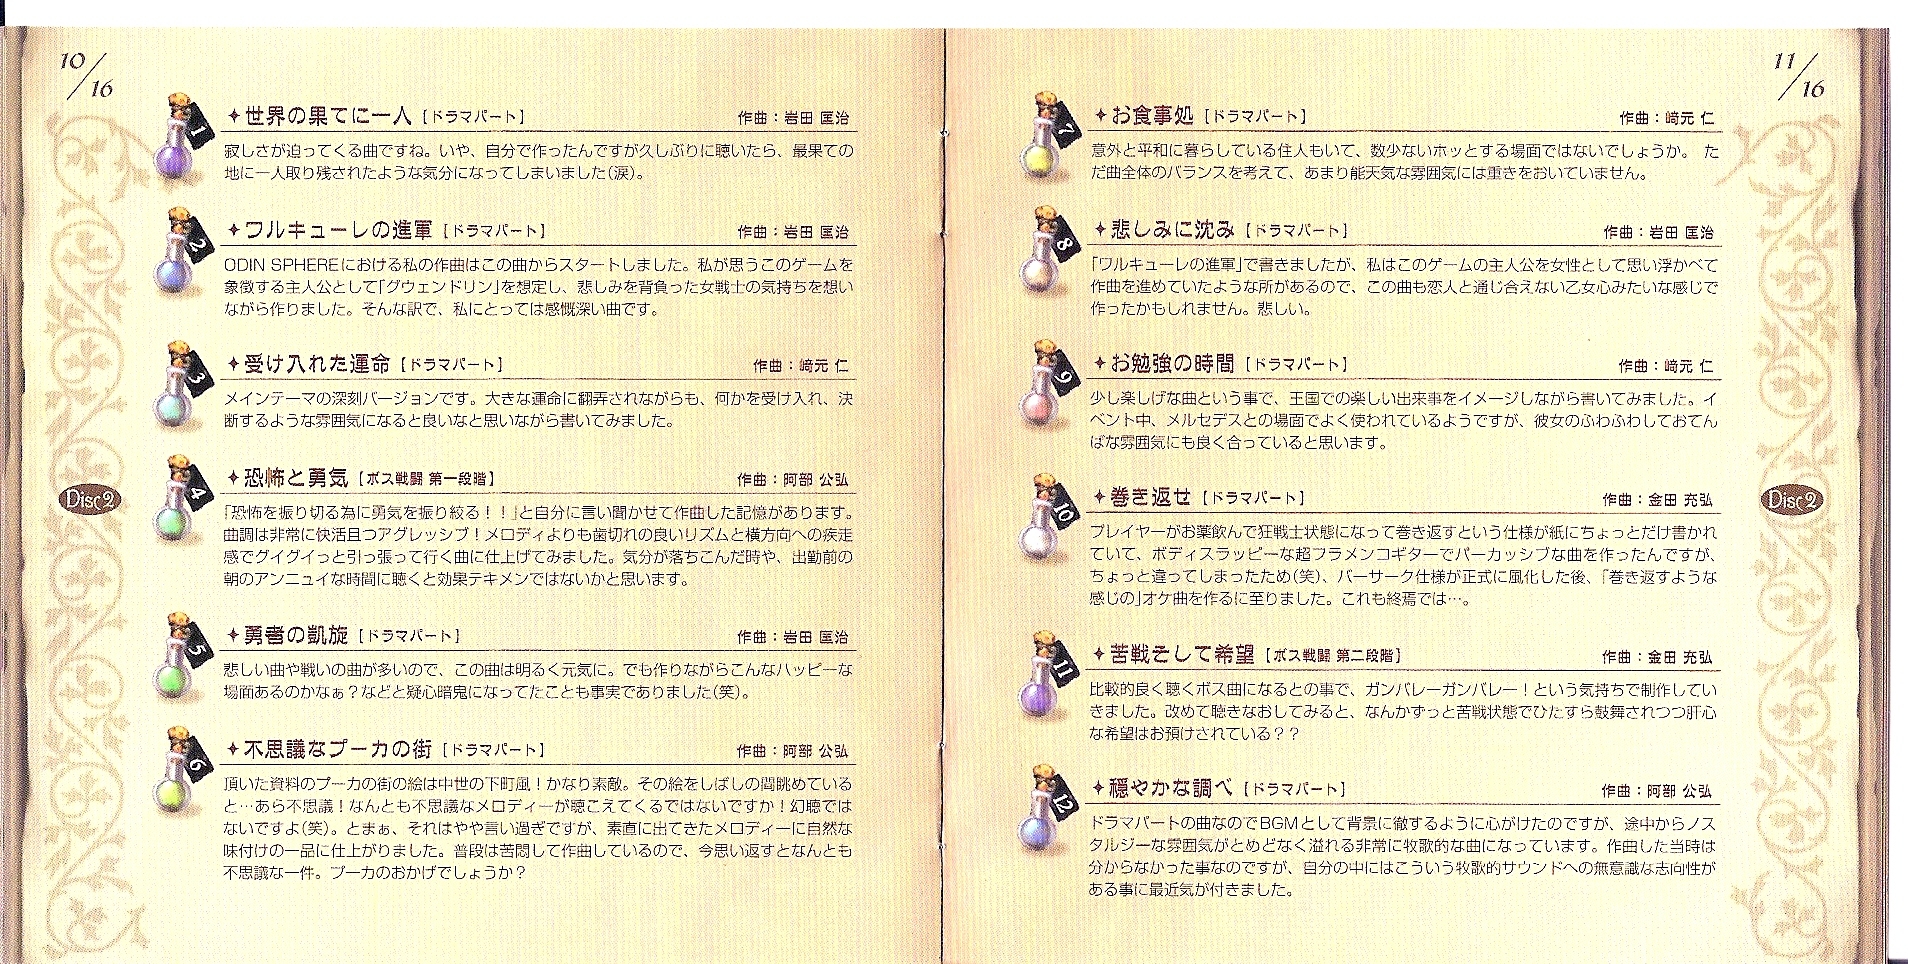 10/16
1
✦世界の果てに一人［ドラマパート］ 作曲：岩田 匡治
寂しさが迫ってくる曲ですね。いや、自分で作ったんですが久しぶりに聴いたら、最果ての
地に一人取り残されたような気分になってしまいました(涙)。
2
✦ワルキューレの進軍［ドラマパート］ 作曲：岩田 匡治
ODIN SPHEREにおける私の作曲はこの曲からスタートしました。私が思うこのゲームを
象徴する主人公として｢グウェンドリン｣を想定し、悲しみを背負った女戦士の気持ちを想い
ながら作りました。そんな訳で、私にとっては感慨深い曲です。
3
✦受け入れた運命［ドラマパート］ 作曲：崎元 仁
メインテーマの深刻バージョンです。大きな運命に翻弄されながらも、何かを受け入れ、決
断するような雰囲気になると良いなと思いながら書いてみました。
4
✦恐怖と勇気［ボス戦闘 第一段階］ 作曲：阿部 公弘
｢恐怖を振り切る為に勇気を振り絞る！！｣と自分に言い聞かせて作曲した記憶があります。
曲調は非常に快活且つアグレッシブ！メロディよりも歯切れの良いリズムと横方向への疾走
感でグイグイっと引っ張って行く曲に仕上げてみました。気分が落ちこんだ時や、出勤前の
朝のアンニュイな時間に聴くと効果テキメンではないかと思います。
5
✦勇者の凱旋［ドラマパート］ 作曲：岩田 匡治
悲しい曲や戦いの曲が多いので、この曲は明るく元気に。でも作りながらこんなハッピーな
場面あるのかなぁ？などと疑心暗鬼になってたことも事実でありました(笑)。
6
✦不思議なプーカの街［ドラマパート］ 作曲：阿部 公弘
頂いた資料のプーカの街の絵は中世の下町風！かなり素敵。その絵をしばしの間眺めている
と…あら不思議！なんとも不思議なメロディーが聴こえてくるではないですか！幻聴では
ないですよ(笑)。とまぁ、それはやや言い過ぎですが、素直に出てきたメロディーに自然な
味付けの一品に仕上がりました。普段は苦悶して作曲しているので、今思い返すとなんとも
不思議な一件。プーカのおかげでしょうか？
Disc2
11/16
7
✦お食事処［ドラマパート］ 作曲：崎元 仁
意外と平和に暮らしている住人もいて、数少ないホッとする場面ではないでしょうか。 た
だ曲全体のバランスを考えて、あまり能天気な雰囲気には重きをおいていません。
8
✦悲しみに沈み［ドラマパート］ 作曲：岩田 匡治
｢ワルキューレの進軍｣で書きましたが、私はこのゲームの主人公を女性として思い浮かべて
作曲を進めていたような所があるので、この曲も恋人と通じ合えない乙女心みたいな感じで
作ったかもしれません。悲しい。
9
✦お勉強の時間［ドラマパート］ 作曲：崎元 仁
少し楽しげな曲という事で、王国での楽しい出来事をイメージしながら書いてみました。イ
ベント中、メルセデスとの場面でよく使われているようですが、彼女のふわふわしておてん
ばな雰囲気にも良く合っていると思います。
10
✦巻き返せ［ドラマパート］ 作曲：金田 充弘
プレイヤーがお薬飲んで狂戦士状態になって巻き返すという仕様が紙にちょっとだけ書かれ
ていて、ボディスラッピーな超フラメンコギターでパーカッシブな曲を作ったんですが、
ちょっと違ってしまったため(笑)、バーサーク仕様が正式に風化した後、｢巻き返すような
感じの｣オケ曲を作るに至りました。これも終焉では…。
11
✦苦戦そして希望［ボス戦闘 第二段階］ 作曲：金田 充弘
比較的良く聴くボス曲になるとの事で、ガンバレーガンバレー！という気持ちで制作してい
きました。改めて聴きなおしてみると、なんかずっと苦戦状態でひたすら鼓舞されつつ肝心
な希望はお預けされている？？
12
✦穏やかな調べ［ドラマパート］ 作曲：阿部 公弘
ドラマパートの曲なのでBGMとして背景に徹するように心がけたのですが、途中からノス
タルジーな雰囲気がとめどなく溢れる非常に牧歌的な曲になっています。作曲した当時は
分からなかった事なのですが、自分の中にはこういう牧歌的サウンドへの無意識な志向性が
ある事に最近気が付きました。
Disc2